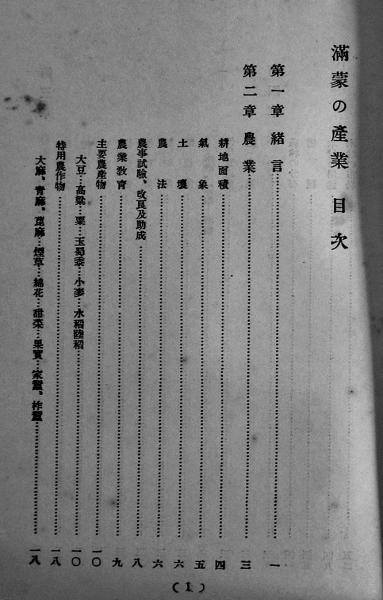 滿蒙の產業 目次
第一章 緒言…………一
第二章 農業…………三
耕地面積…………四
氣象…………五
土壤…………六
農法…………六
農事試驗、改良及助成…………八
農業敎育…………九
主要農產物…………一〇
大豆…高粱…粟…玉蜀黍…小麥…水稻陸稻…………一〇
特用農作物…………一八
大麻、靑麻、蓖麻…煙草…綿花…甜菜…果實…家蠶、柞蠶…………一八
(1)